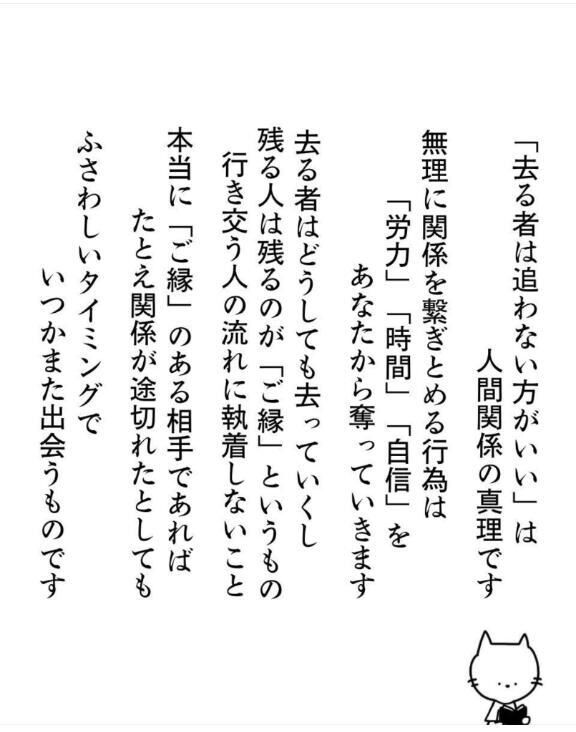 「去る者は追わない方がいい」は
人間関係の真理です
無理に関係を繋ぎとめる行為は
「労力」「時間」「自信」を
あなたから奪っていきます
去る者はどうしても去っていくし
残る人は残るのが「ご縁」というもの
行き交う人の流れに執着しないこと
本当に「ご縁」のある相手であれば
たとえ関係が途切れたとしても
ふさわしいタイミングで
いつかまた出会うものです